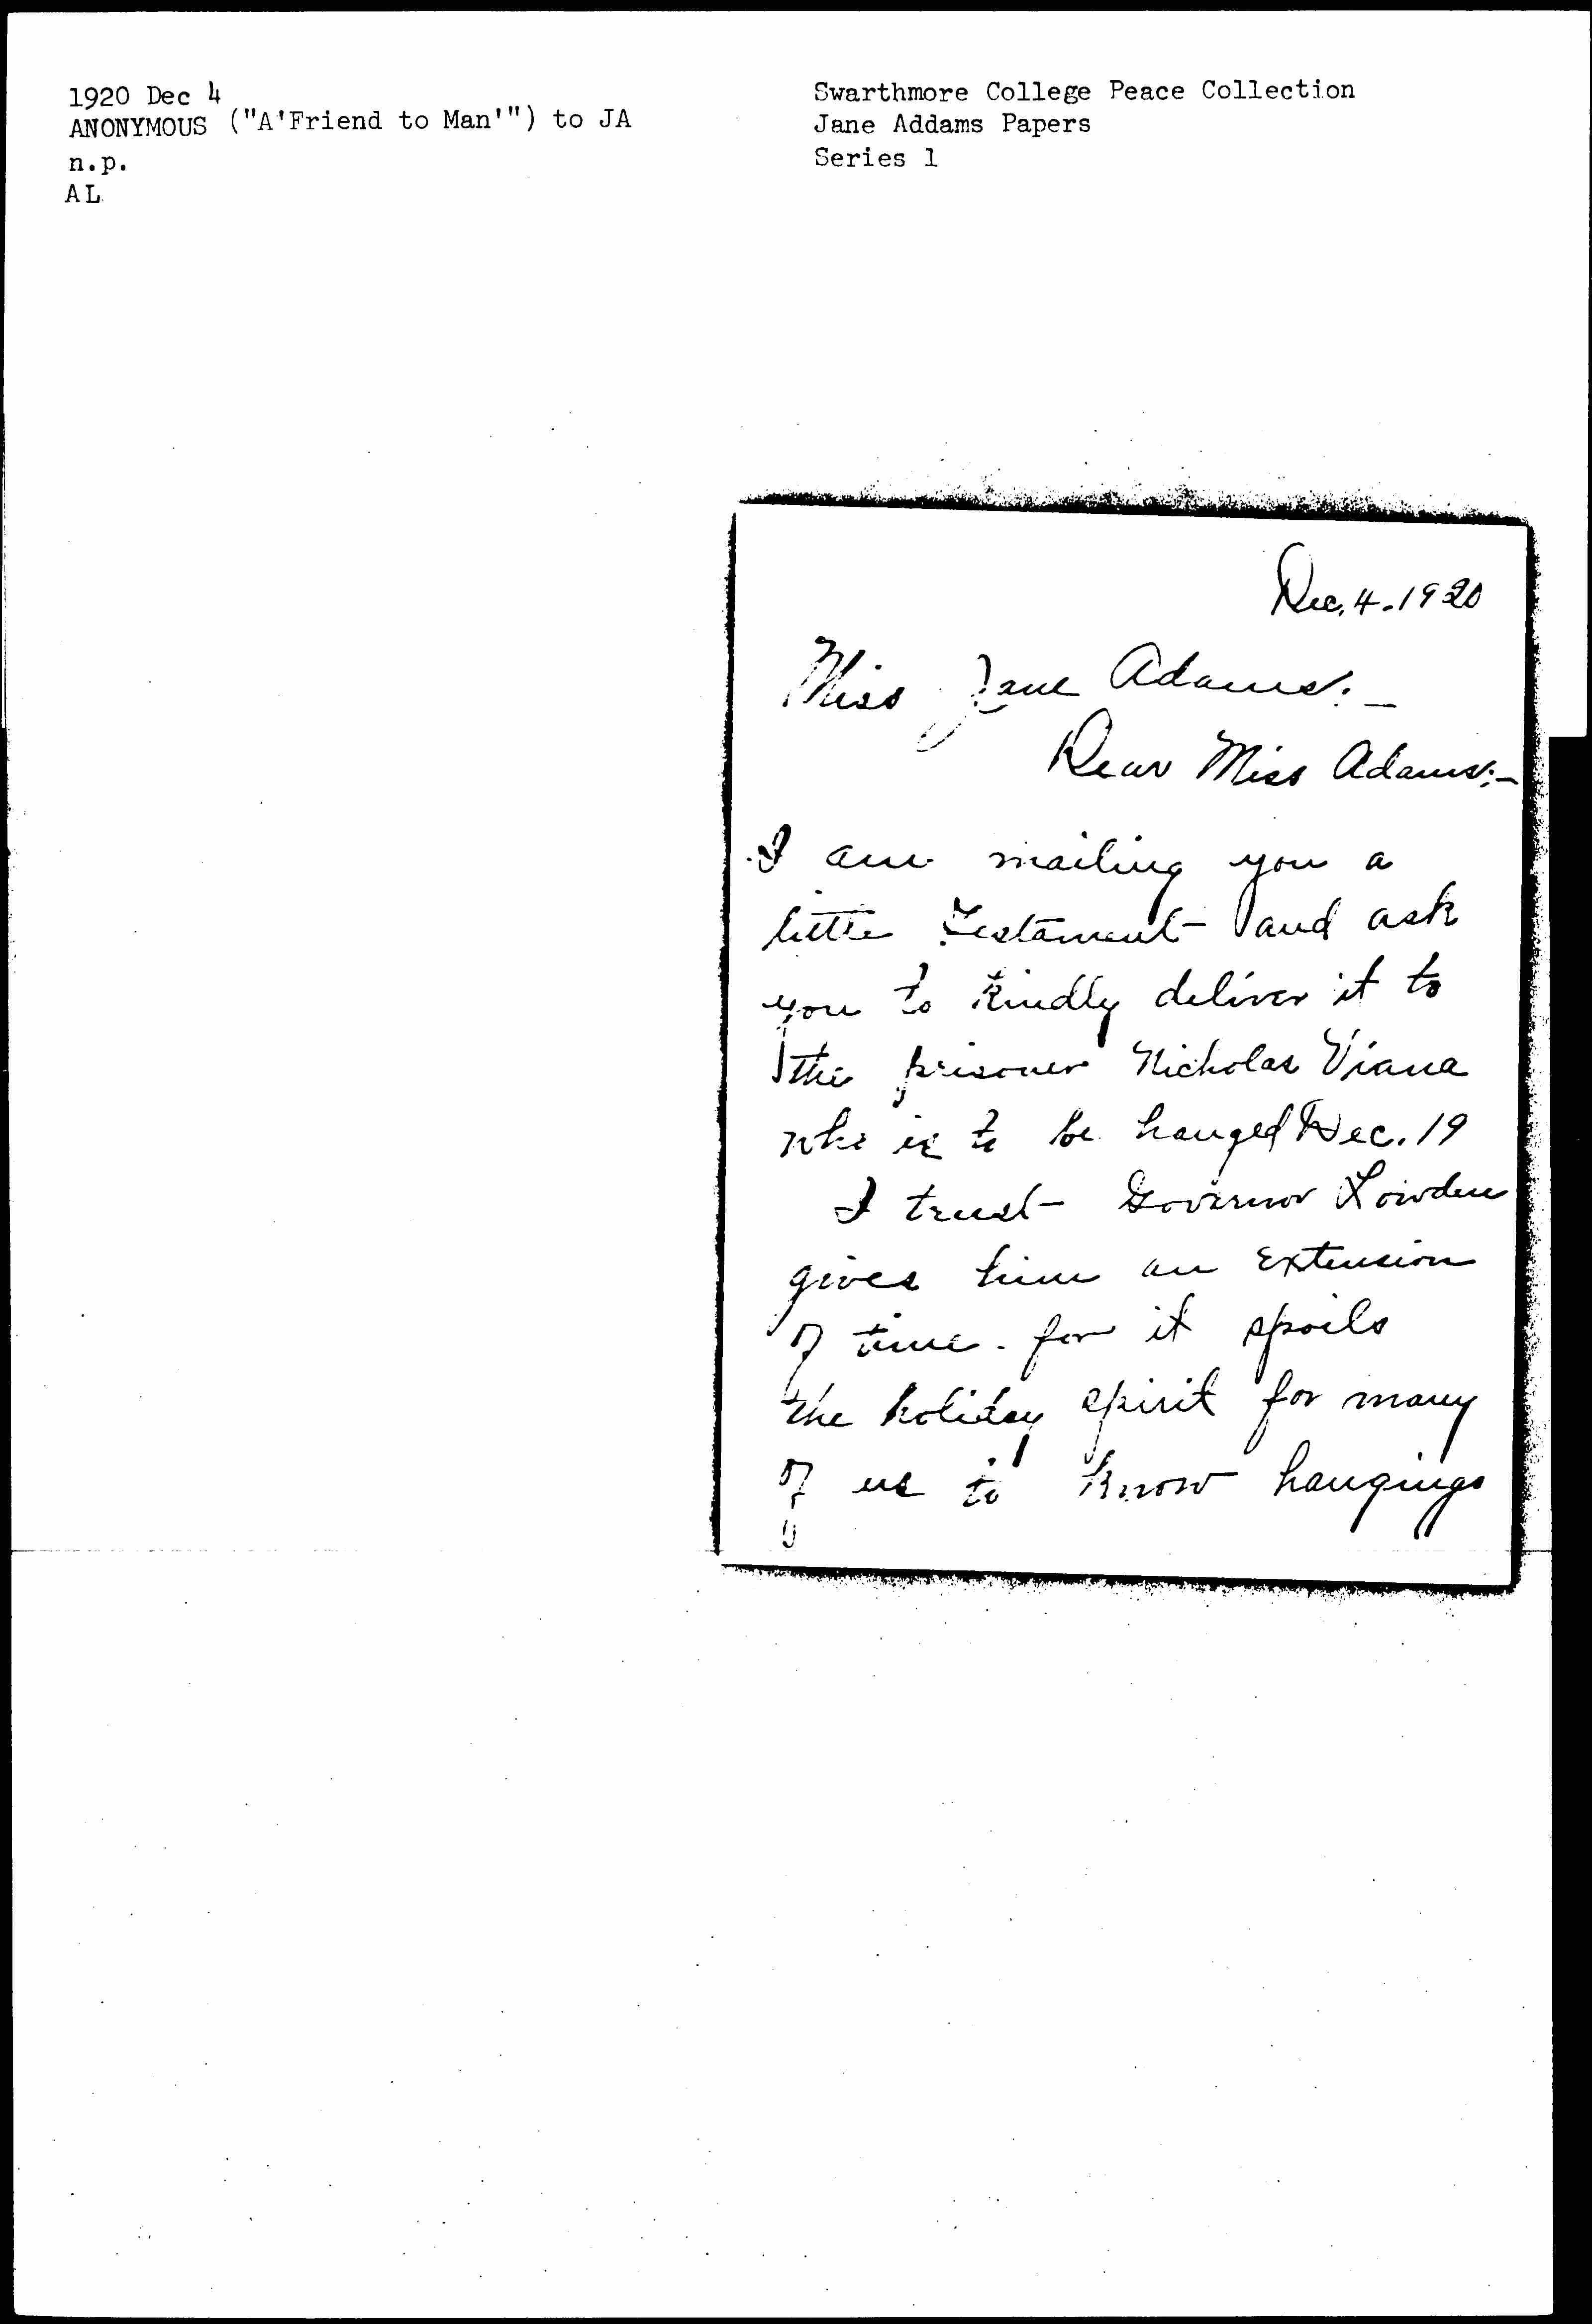 1920 Dec 4
ANONYMOUS ("A'Friend to Man'") to JA
n.p.
AL
Swarthmore College Peace Collection
Jane Addams Papers
Series 1
Dec. 4. 1920
Miss Jane Adams:-
Dear Miss Adams:-
I am mailing you a
little Testament- and ask
you to kindly deliver it to
the prisoner Nicholas Viana
who is to be hanged Dec. 19
I trust- Governor Lowden
gives him an extension
of time. for it spoils
the holiday spirit for many
of us to know hangings